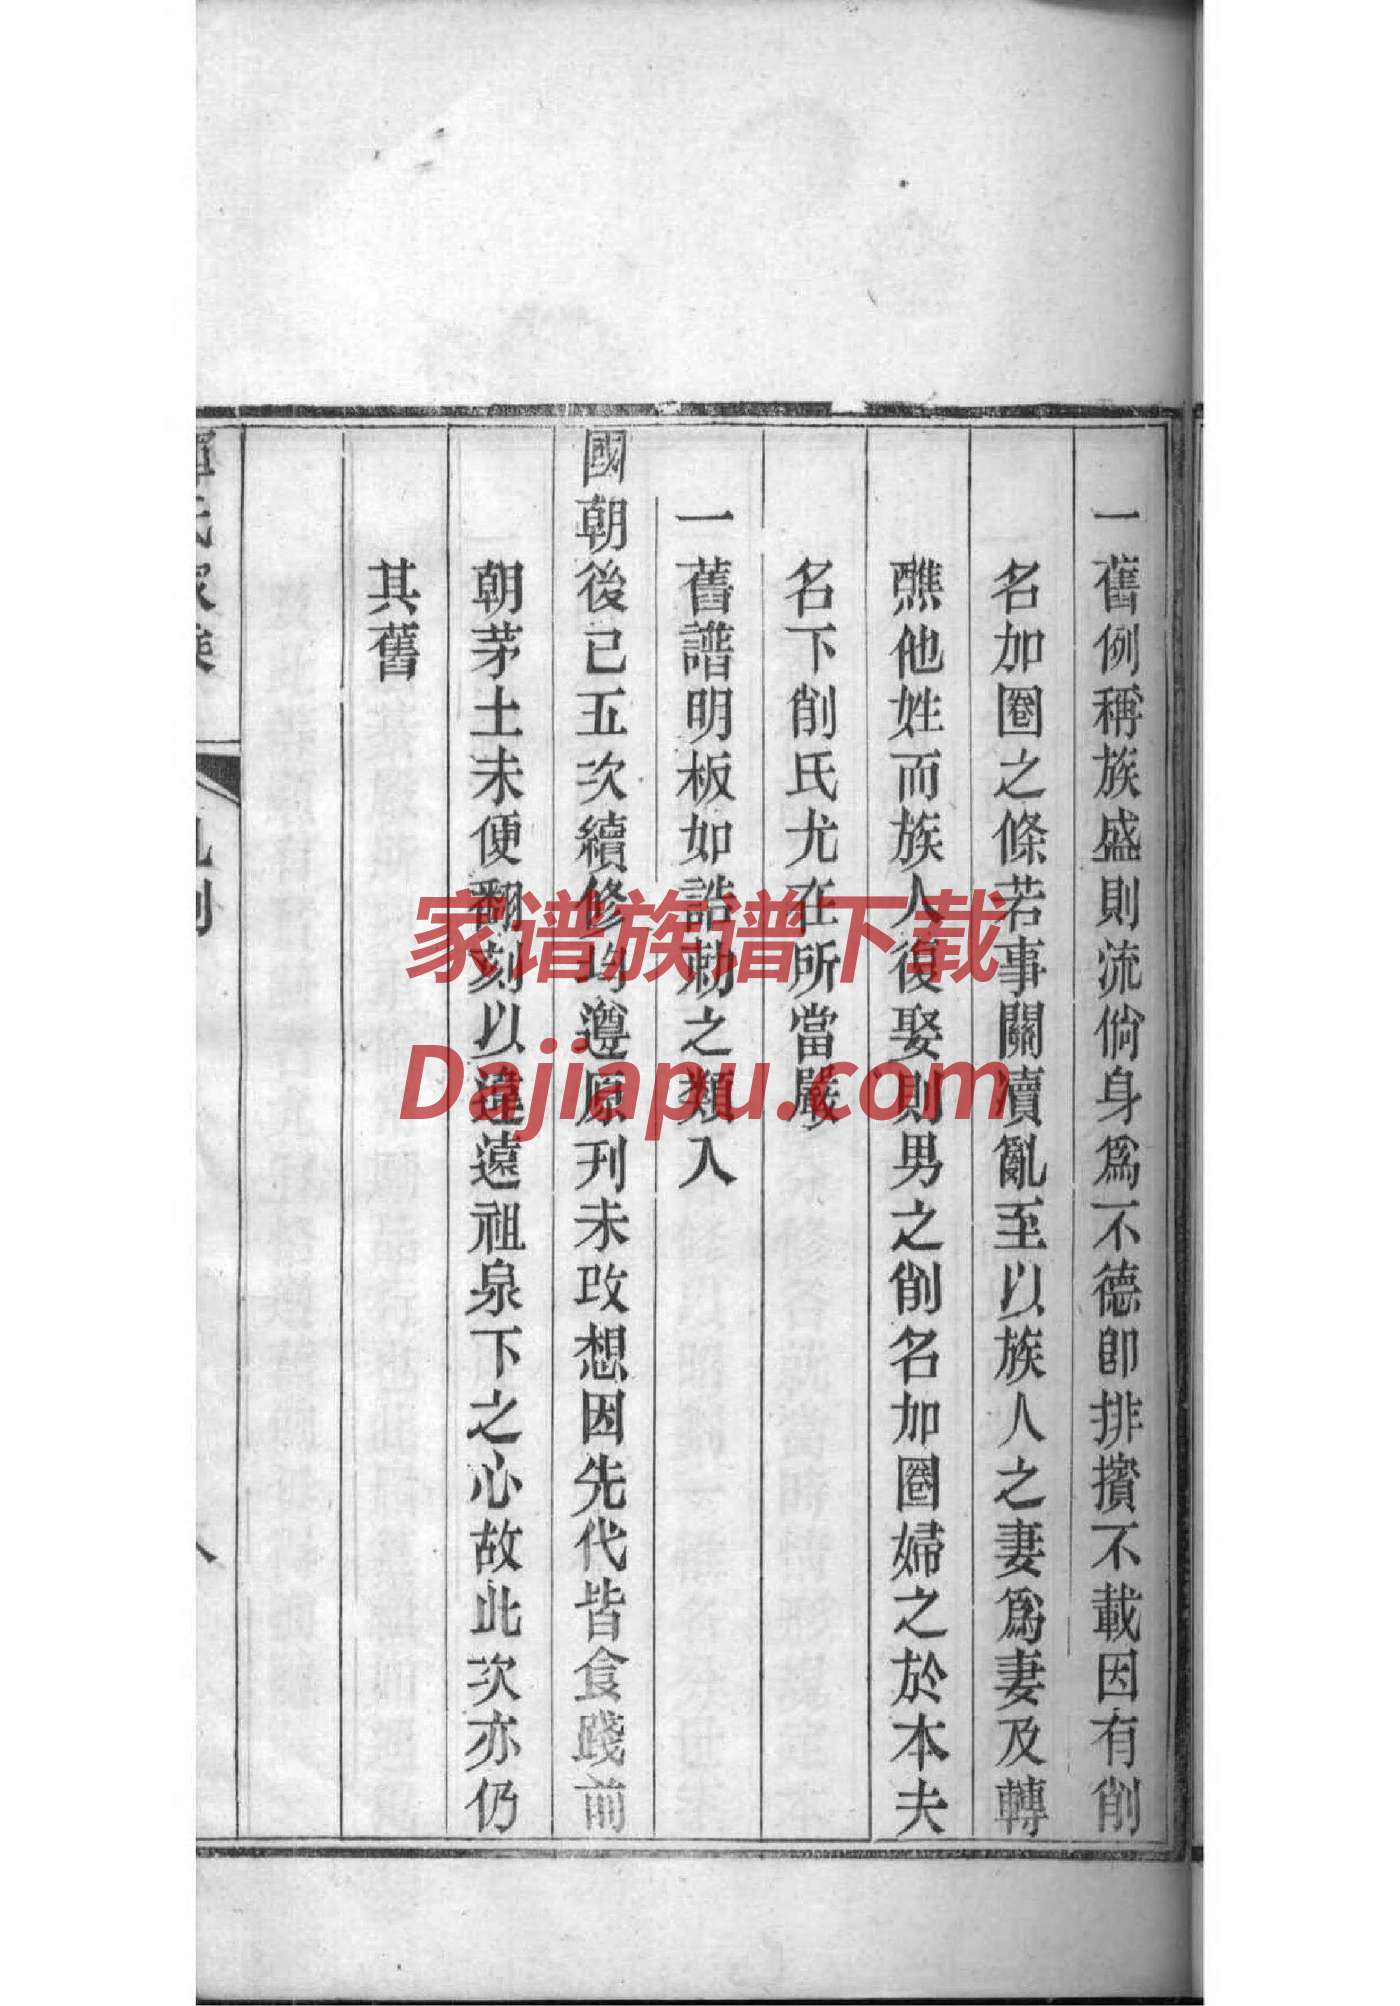 一舊例稱族盛則流倘身爲不德卽排擯不載因有削
名加圈之條若事關瀆亂至以族人之妻爲妻及轉
醮他姓而族人復娶則男之削名加圈婦之於本夫
名下削氏尤在所當嚴
一舊譜明板如誥勅之類入
國朝後已五次續修均遵原刊未改想因先代皆食踐前
朝茅土未便翻刻以違遠祖泉下之心故此次亦仍
其舊
氏家乘
凡例
八
家谱族谱下载
Dajiapu.com